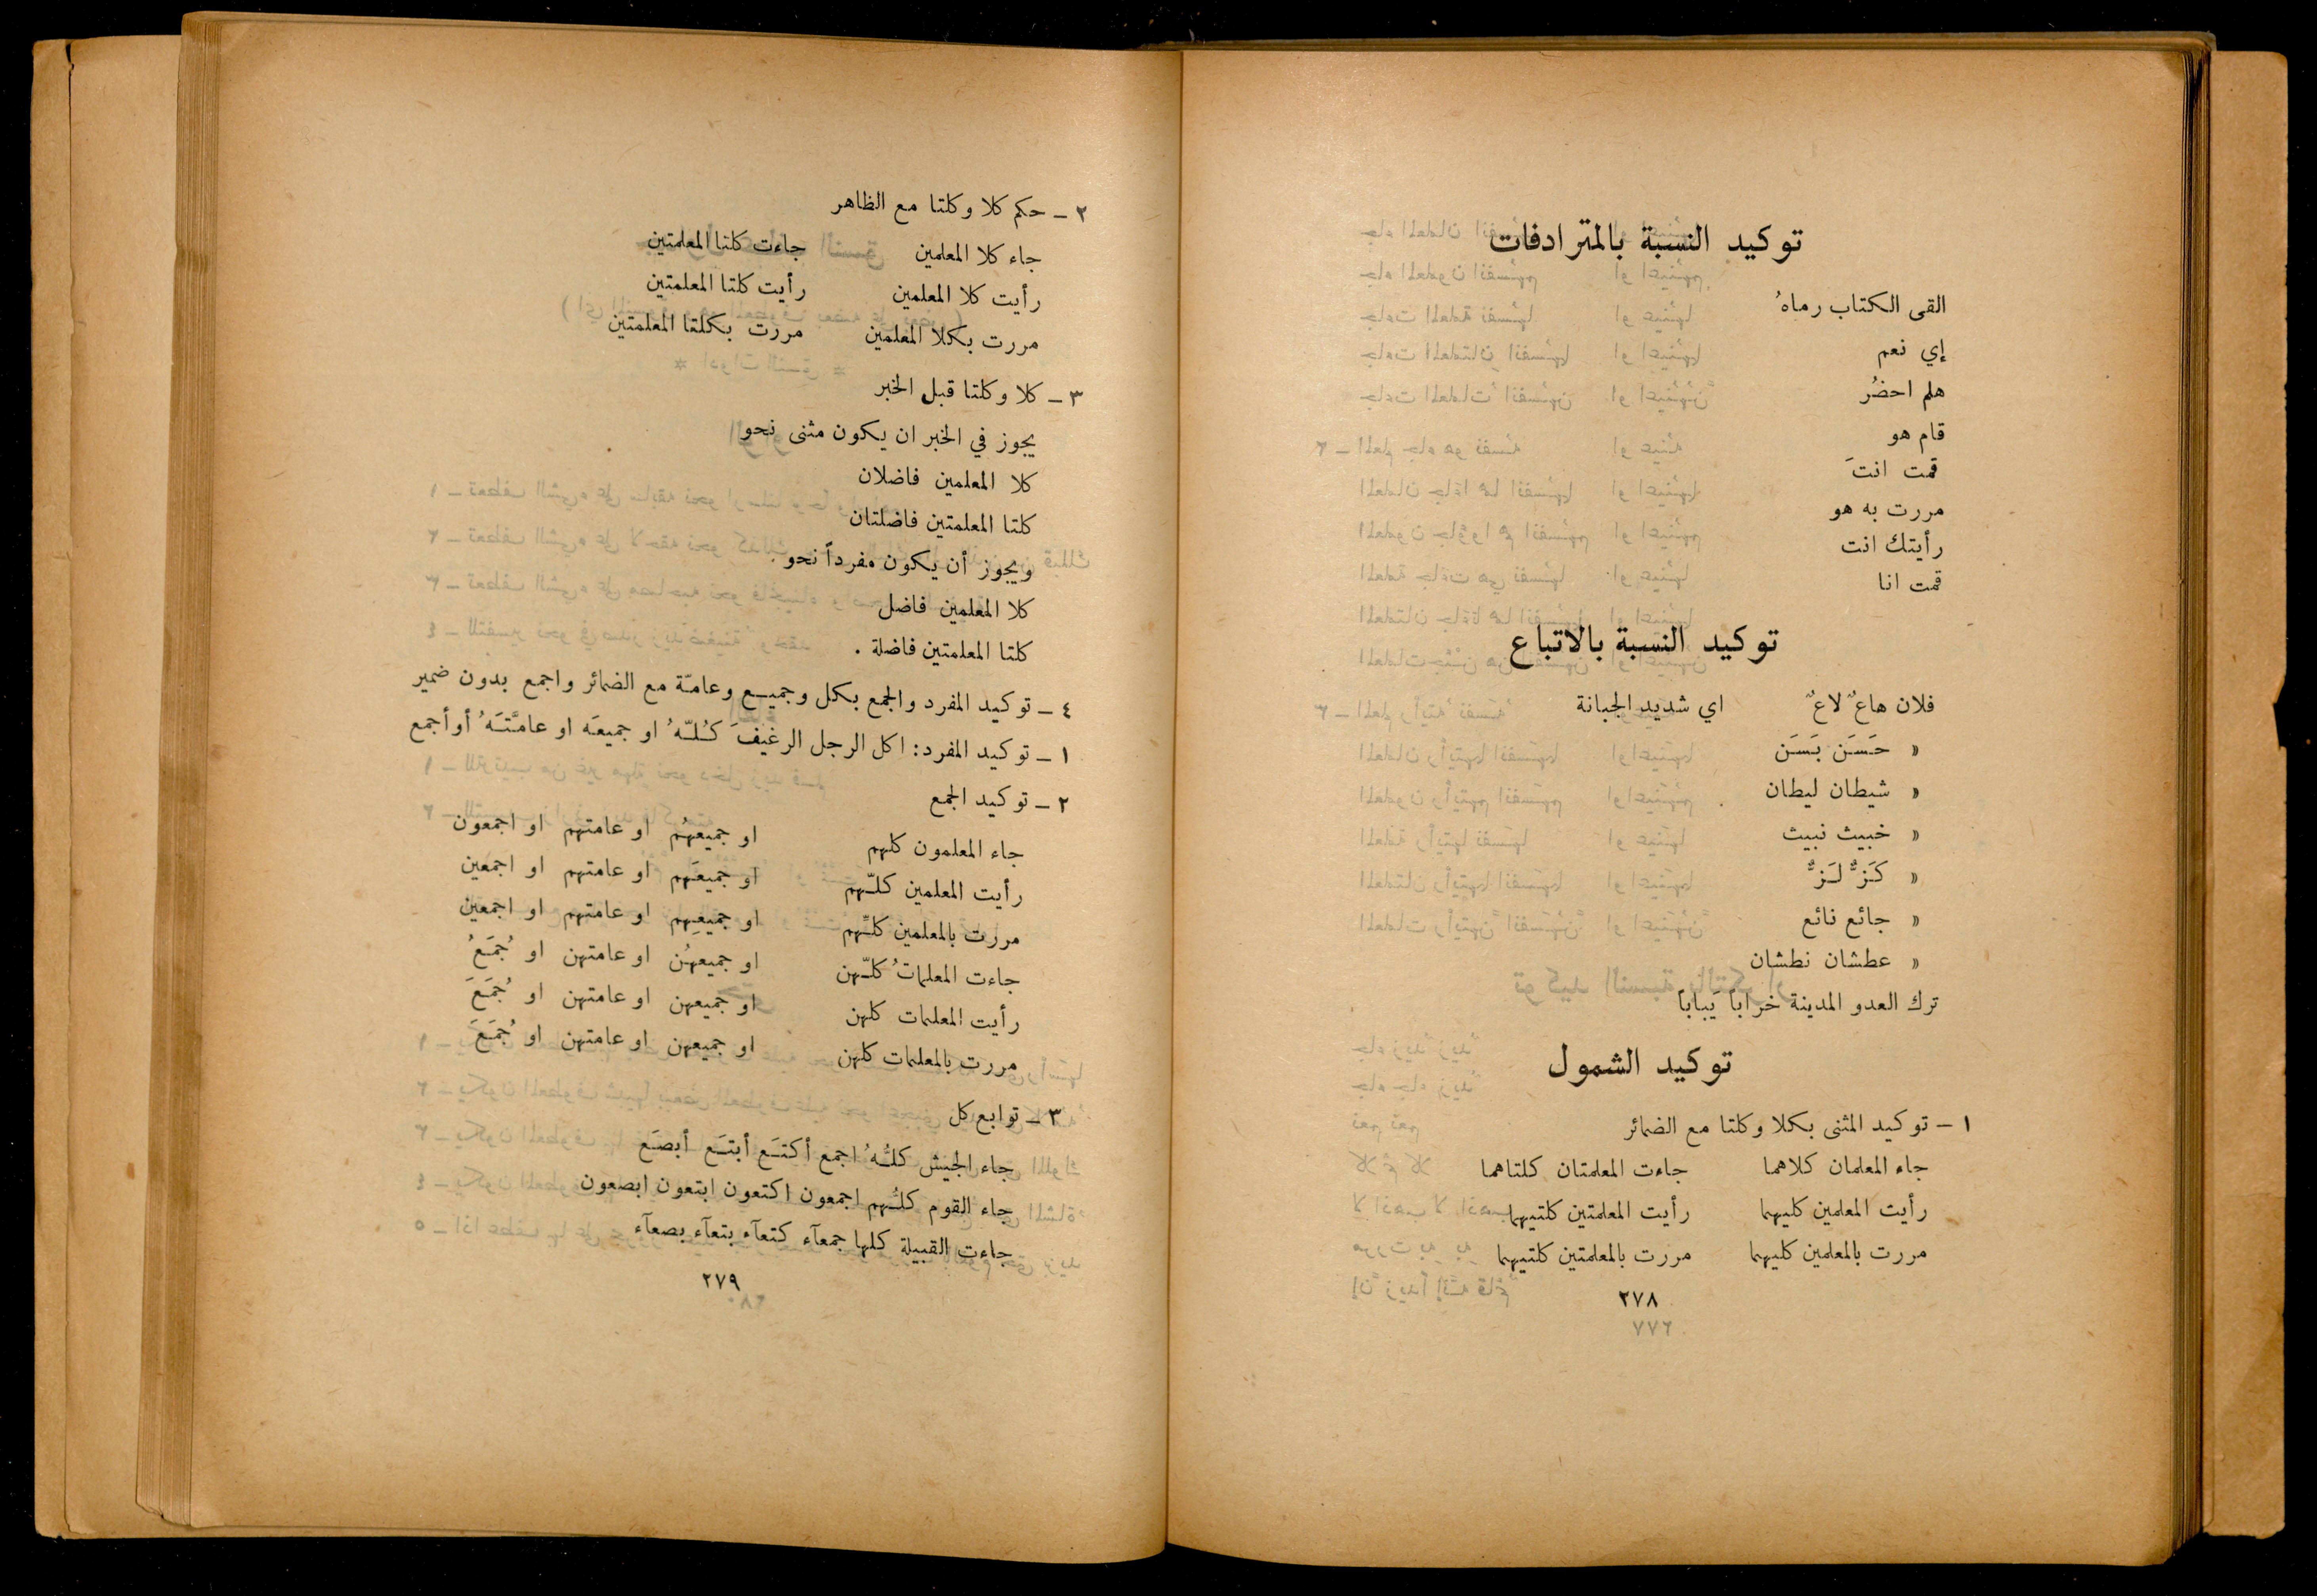 توكيد النسبة بالمترادفات
القى الكتاب رماهُ
إي نعم
هلم احضُر
قام هو
قمت انتَ
مررت به هو
رأيتك انت
قمت انا
توكيد النسبة بالاتباع
فلان هاعٌ لاعٌ اي شديد الجبانة
« حَسَن بَسَن
« شيطان ليطان
« خبيث نبيث
« كَزٌّ لَزٌّ
« جائع نائع
« عطشان نطشان
ترك العدو المدينة خراباً يَباباً
توكيد الشمول
١ – توكيد المثنى بكلا وكلتا مع الضمائر
جاء المعلمان كلاهما جاءت المعلمتان كلتاهما
رأيت المعلمين كليهما رأيت المعلمتين كلتيهما
مررت بالمعلمين كليهما مررت بالمعلمتين كلتيهما
٢٧٨
٢ – حكم كلا وكلتا مع الظاهر
جاء كلا المعلمين جاءت كلتا المعلمتين
رأيت كلا المعلمين رأيت كلتا المعلمتين
مررت بكلا المعلمين مررت بكلتا المعلمتين
٣ – كلا وكلتا قبل الخبر
يجوز في الخبر ان يكون مثنى نحو
كلا المعلمين فاضلان
كلتا المعلمتين فاضلتان
ويجوز أن يكون مفرداً نحو
كلا المعلمين فاضل
كلتا المعلمتين فاضلة .
٤ – توكيد المفرد والجمع بكل وجميع وعامّة مع الضمائر واجمع بدون ضمير
١ – توكيد المفرد: اكل الرجل الرغيفَ كُلّهُ او جميعَه او عامَّتَهُ أو أجمع
٢ – توكيد الجمع
جاء المعلمون كلهم او جميعهُم او عامتهم او اجمعون
رأيت المعلمين كلّهم او جميعَهم او عامتهم او اجمعين
مررت بالمعلمين كلِّهم او جميعِهم او عامتهم او اجمعين
جاءت المعلماتُ كلّهن او جميعهُن او عامتهن او جُمَعُ
رأيت المعلمات كلهن او جميعهن او عامتهن او جُمَعَ
مررت بالمعلمات كلهن او جميعهن او عامتهن او جُمَعَ
٣ – توابع كل
جاء الجيش كلُّهُ اجمع أكتَع أبتَع أبصَع
جاء القوم كلُّهم اجمعون اكتعون ابتعون ابصعون
جاءت القبيلة كلها جمعآء كتعآء بتعآء بصعآء
٢٧٩